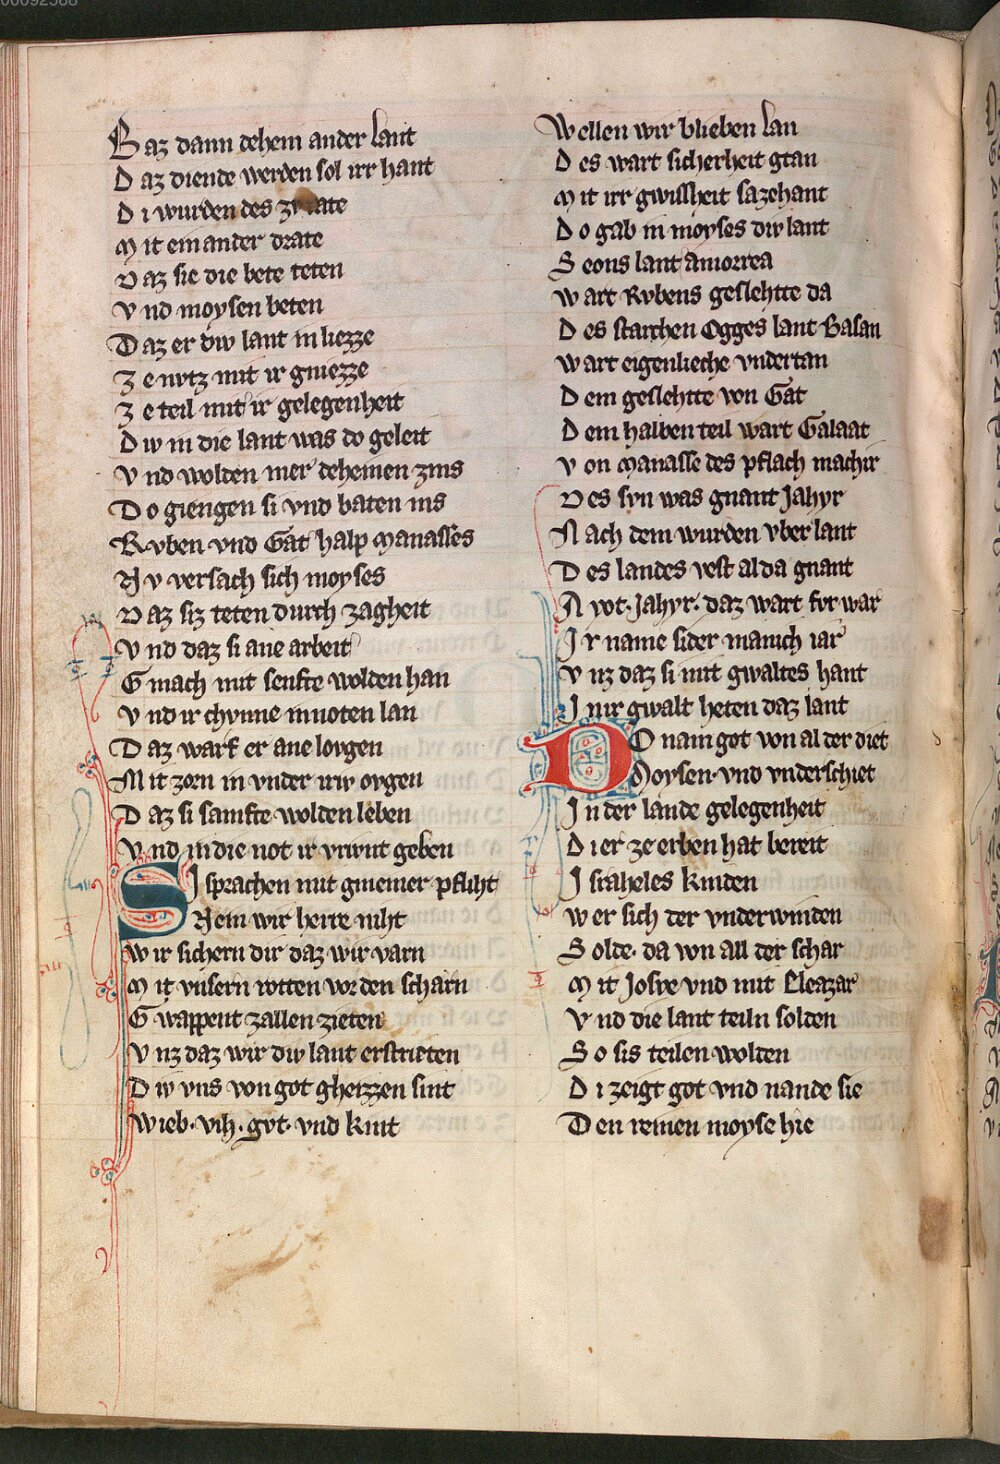 00092588
Baz dann dehein ander lant
Daz diende werden sol irr hant
Di wurden des ze rate
Mit ein ander drate
Daz sie die bete teten
Vnd moysen beten
Daz er div lant in liezze
Ze nvtz mit ir gniezze
Ze teil mit ir gelegenheit
Div in die lant was do geleit
Vnd wolden mer deheinen zins
Do giengen si vnd baten ins
Rvben vnd Gat halp Manasses
Nv versach sich moyses
Daz siz teten durch zagheit
Vnd daz si ane arbeit
Gmach mit senfte wolden han
Vnd ir chvnne muoten lan
Daz warf er ane lovgen
Mit zorn in vnder iriv ovgen
Daz si samfte wolden leben
Vnd in die not ir vrivnt geben
Si sprachen mit gmeiner pfliht
Nein wir herre niht
Wir sichern dir daz wir varn
Mit vnsern rotten vor den scharn
Gwappent zallen zieten
Vnz daz wir div lant erstrieten
Div vns von got gheizzen sint
Wieb. vih. gvt. vnd kint
Wellen wir blieben lan
Des wart sicherheit gtan
Mit irr gwissheit sazehant
Do gab in moyses div lant
Seons lant Amorrea
Wart Rvbens geslehtte da
Des starchen Ogges lant Basan
Wart eigenlieche vndertan
Dem geslehtte von Gat
Dem halben teil wart Galaat
Von Manasse des pflach machir
Des svn was gnant Jahyr
Nach dem wurden vber lant
Des landes vest alda gnant
Avot. Jahyr. daz wart for war
Ir name sider manich iar
Vnz daz si mit gwaltes hant
In ir gwalt heten daz lant
Do nam got von al der diet
Moysen. vnd vnderschiet
In der lande gelegenheit
Di er ze erben hat bereit
Israheles kinden
Wer sich der vnderwinden
Solde. da von all der schar
Mit Josve vnd mit Eleazar
Vnd die lant teiln solden
So sis teilen wolden
Di zeigt got vnd nande sie
Den reinen moyse hie